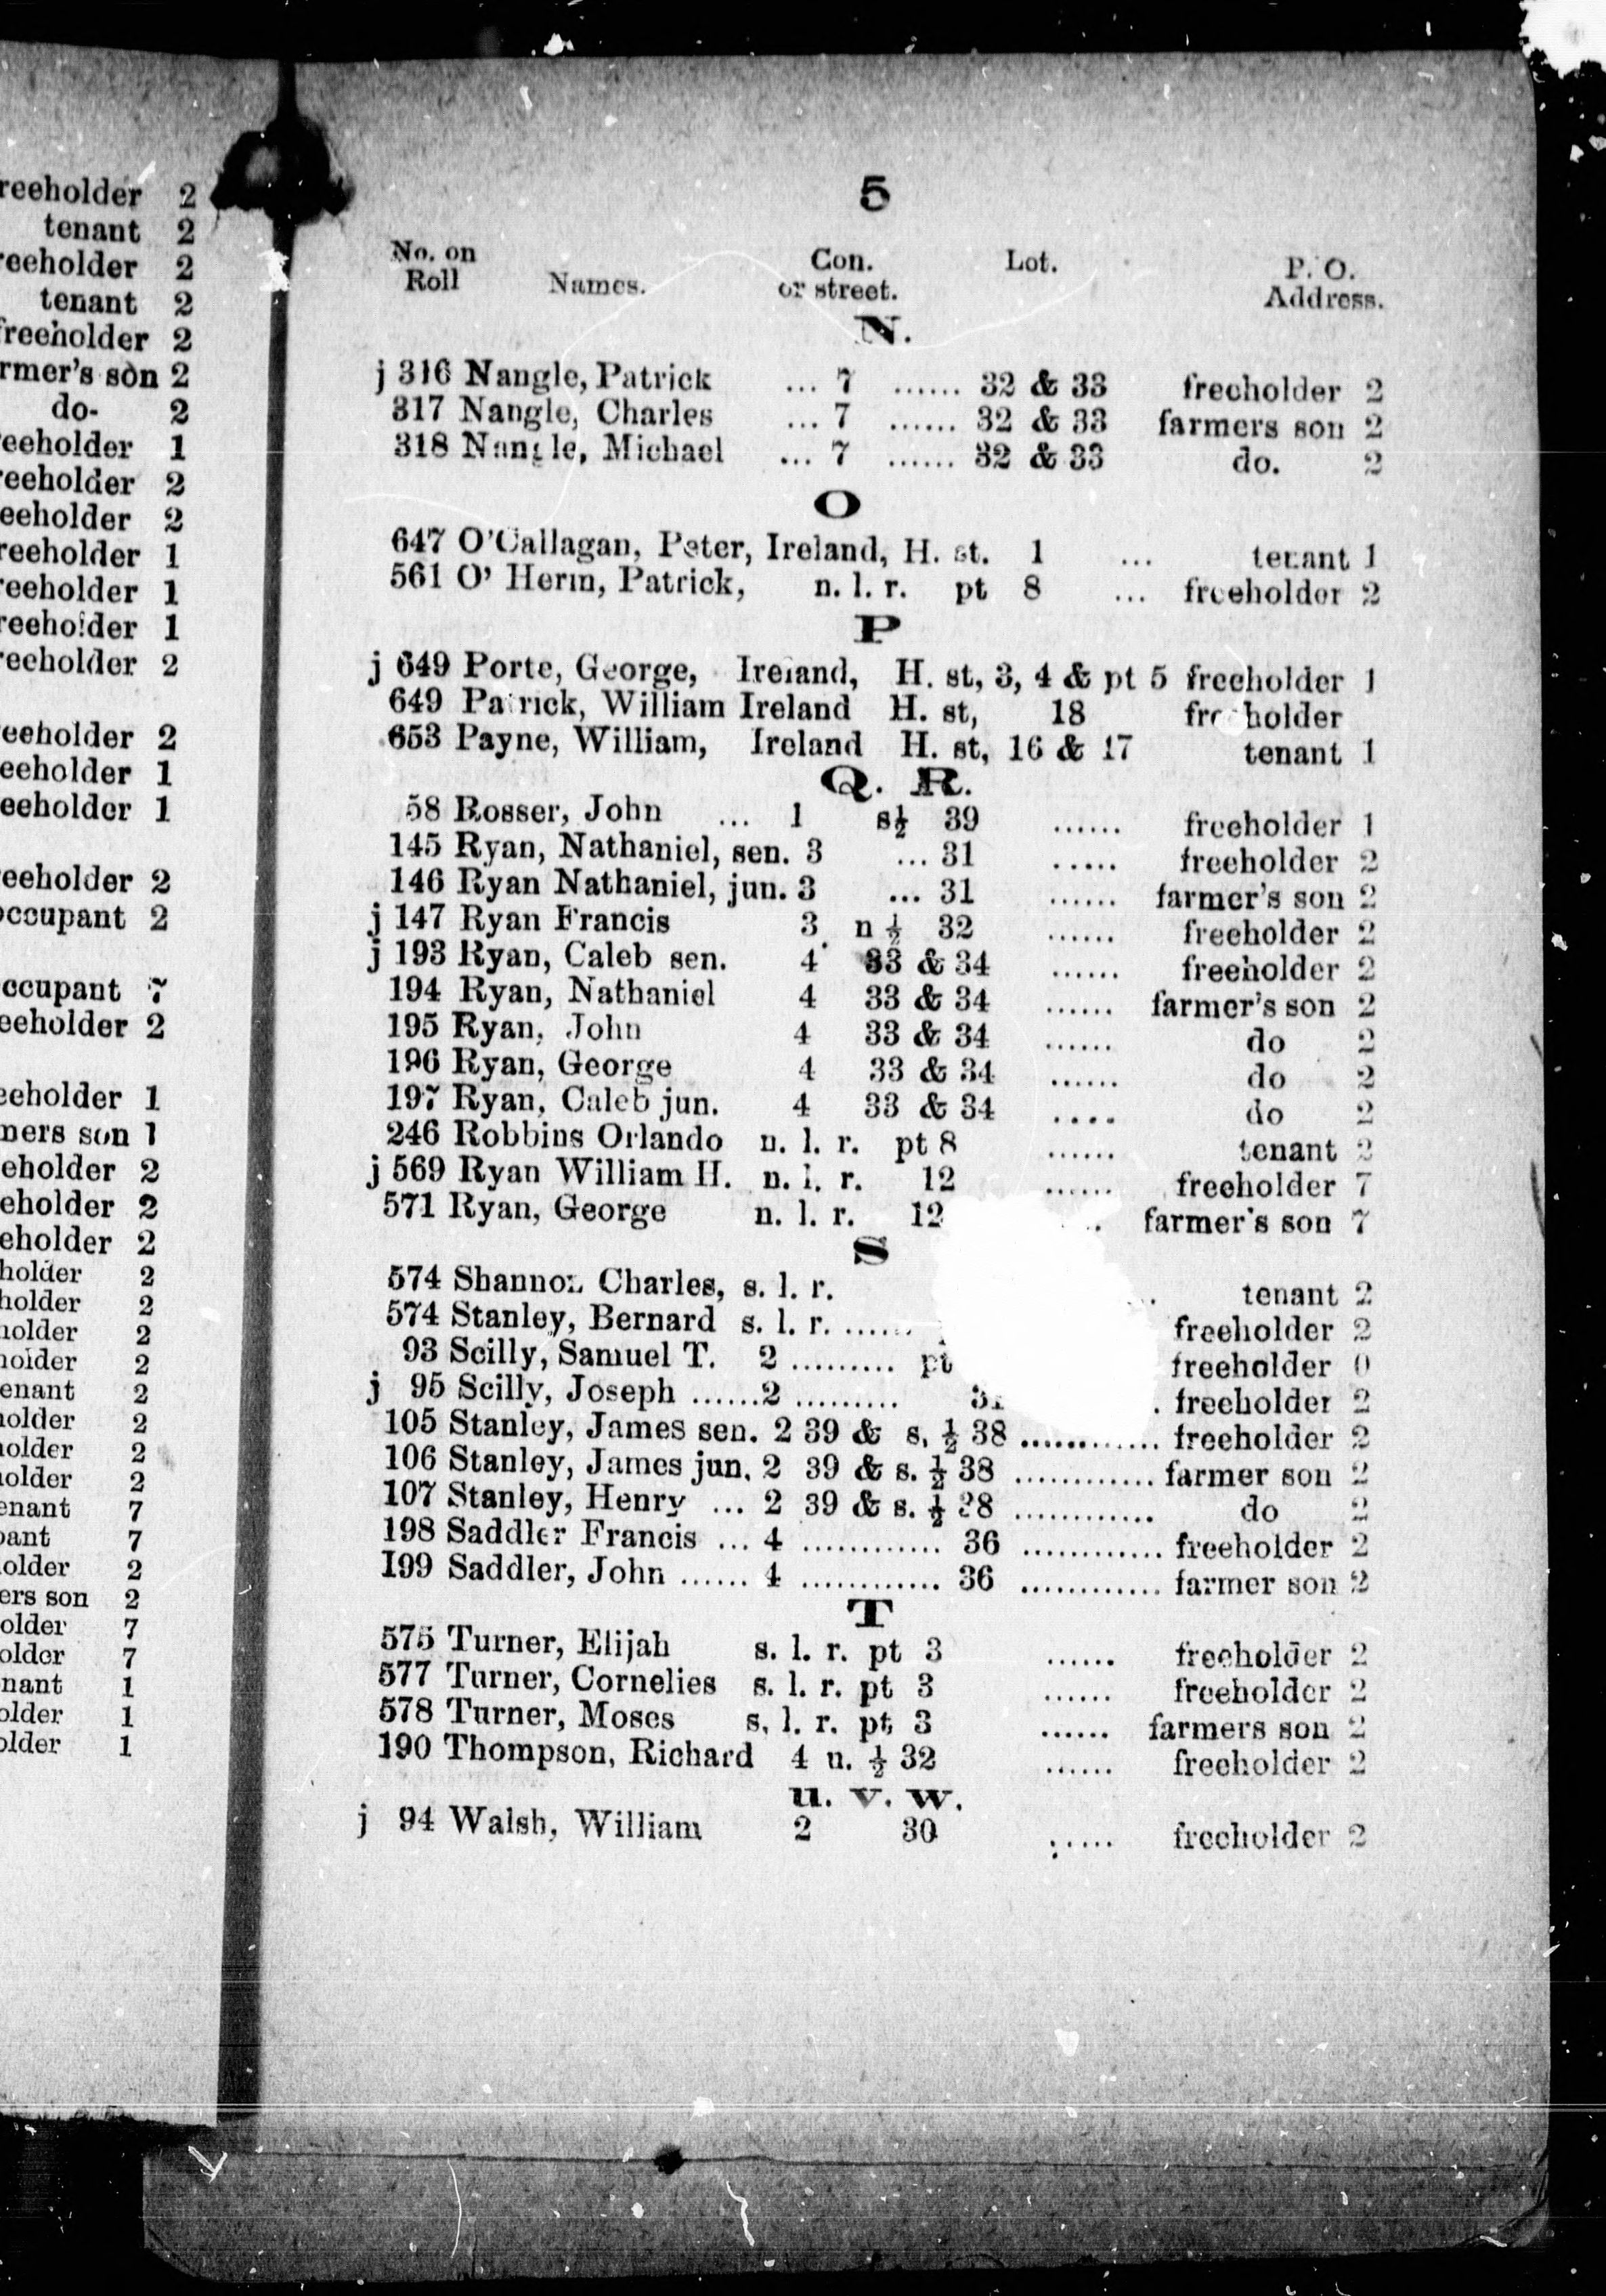 reeholder 2
tenant 2
reeholder 2
tenant 2
freeholder 2
rmer's son 2
do- 2
eeholder 1
reeholder 2
eeholder 2
reeholder 1
reeholder 1
reeholder 1
reeholder 2
eeholder 2
eeholder 1
eeholder 1
eeholder 2
occupant 2
ccupant 7
eeholder 2
eeholder 1
mers son 1
eholder 2
eholder 2
eholder 2
holder 2
holder 2
holder 2
holder 2
enant 2
holder 2
holder 2
holder 2
enant 7
pant 7
older 2
ers son 2
older 7
older 7
nant 1
older 1
older 1
5
No. on Roll Names. Con. or street. Lot. P. O. Address.
N.
j 316 Nangle, Patrick ... 7 ...... 32 & 33 freeholder 2
317 Nangle, Charles ... 7 ...... 32 & 33 farmers son 2
318 Nangle, Michael ... 7 ...... 32 & 33 do. 2
O
647 O'Callagan, Peter, Ireland, H. st. 1 ... tenant 1
561 O' Herin, Patrick, n. l. r. pt 8 ... freeholder 2
P
j 649 Porte, George, Ireland, H. st, 3, 4 & pt 5 freeholder 1
649 Patrick, William Ireland H. st, 18 freeholder
653 Payne, William, Ireland H. st, 16 & 17 tenant 1
Q. R.
58 Rosser, John ... 1 s½ 39 ...... freeholder 1
145 Ryan, Nathaniel, sen. 3 ... 31 ..... freeholder 2
146 Ryan Nathaniel, jun. 3 ... 31 ...... farmer's son 2
j 147 Ryan Francis 3 n ½ 32 ...... freeholder 2
j 193 Ryan, Caleb sen. 4 33 & 34 ...... freeholder 2
194 Ryan, Nathaniel 4 33 & 34 ...... farmer's son 2
195 Ryan, John 4 33 & 34 ...... do 2
196 Ryan, George 4 33 & 34 ...... do 2
197 Ryan, Caleb jun. 4 33 & 34 .... do 2
246 Robbins Orlando n. l. r. pt 8 ...... tenant 2
j 569 Ryan William H. n. l. r. 12 ...... freeholder 7
571 Ryan, George n. l. r. 12 . farmer's son 7
S
574 Shannon Charles, s. l. r. .. tenant 2
574 Stanley, Bernard s. l. r. ...... freeholder 2
93 Scilly, Samuel T. 2 ......... pt freeholder 0
j 95 Scilly, Joseph ......2 ......... . freeholder 2
105 Stanley, James sen. 2 39 & s. ½ 38 ............ freeholder 2
106 Stanley, James jun. 2 39 & s. ½ 38 ............ farmer son 2
107 Stanley, Henry ... 2 39 & s. ½ 38 ............ do 2
198 Saddler Francis ... 4 ............ 36 ............ freeholder 2
199 Saddler, John ...... 4 ............ 36 ............ farmer son 2
T
575 Turner, Elijah s. l. r. pt 3 ...... freeholder 2
577 Turner, Cornelies s. l. r. pt 3 ...... freeholder 2
578 Turner, Moses s, l. r. pt 3 ...... farmers son 2
190 Thompson, Richard 4 n. ½ 32 ...... freeholder 2
U. V. W.
j 94 Walsh, William 2 30 ..... freeholder 2